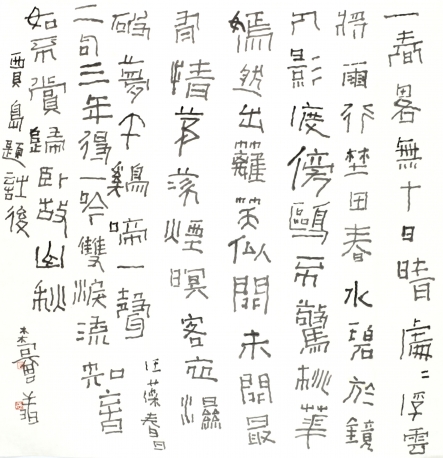 一春畧無十日晴處〻浮雲
將雨行埜田春水碧於鏡
人影度傍鷗不驚桃華
嫣然出籬笑似開未開最
有情茅茨煙暝客衣濕
破夢午鷄啼一聲
汪藻春日
二句三年得一吟雙淚流知音
如不賞歸臥故山秋
賈島題詩後